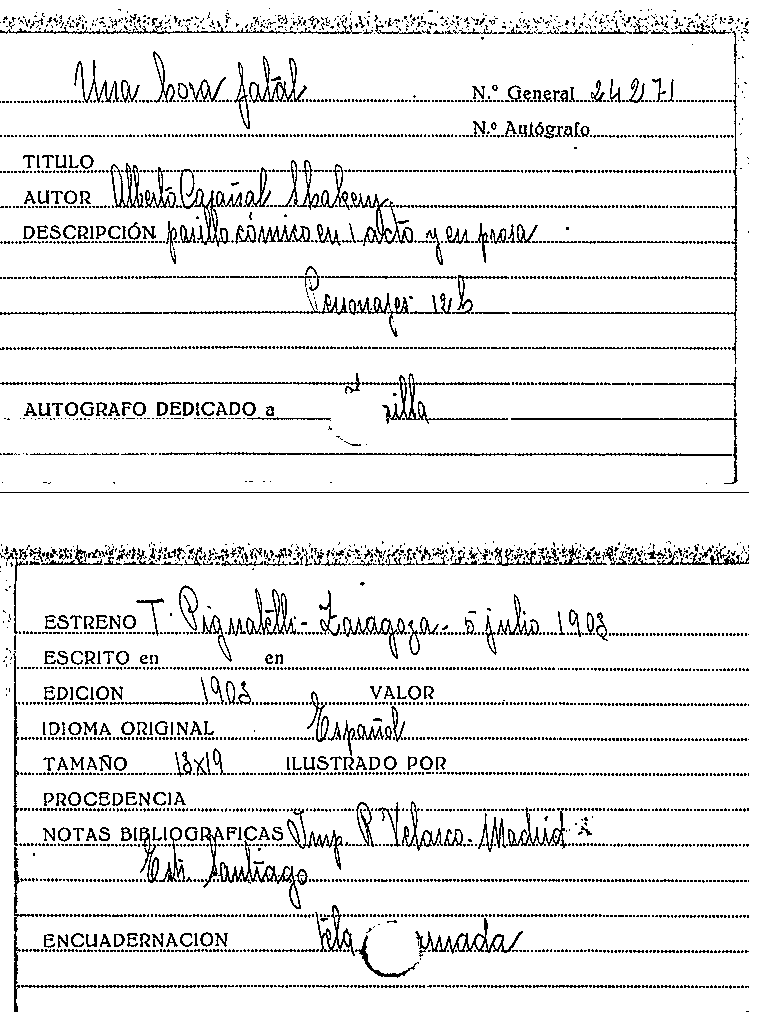 Una hora fatal
N.º General 24271
N.º Autógrafo
TITULO
AUTOR Alberto Casañal Shakery
DESCRIPCIÓN pasillo cómico en 1 acto y en prosa
Personajes 12 h
AUTOGRAFO DEDICADO a
ESTRENO T. Pignatelli - Zaragoza - 5 julio 1903
ESCRITO en en
EDICION 1903 VALOR
IDIOMA ORIGINAL Español
TAMAÑO 13x19 ILUSTRADO POR
PROCEDENCIA
NOTAS BIBLIOGRAFICAS Imp. R Velasco. Madrid
Est. Santiago
ENCUADERNACION tela